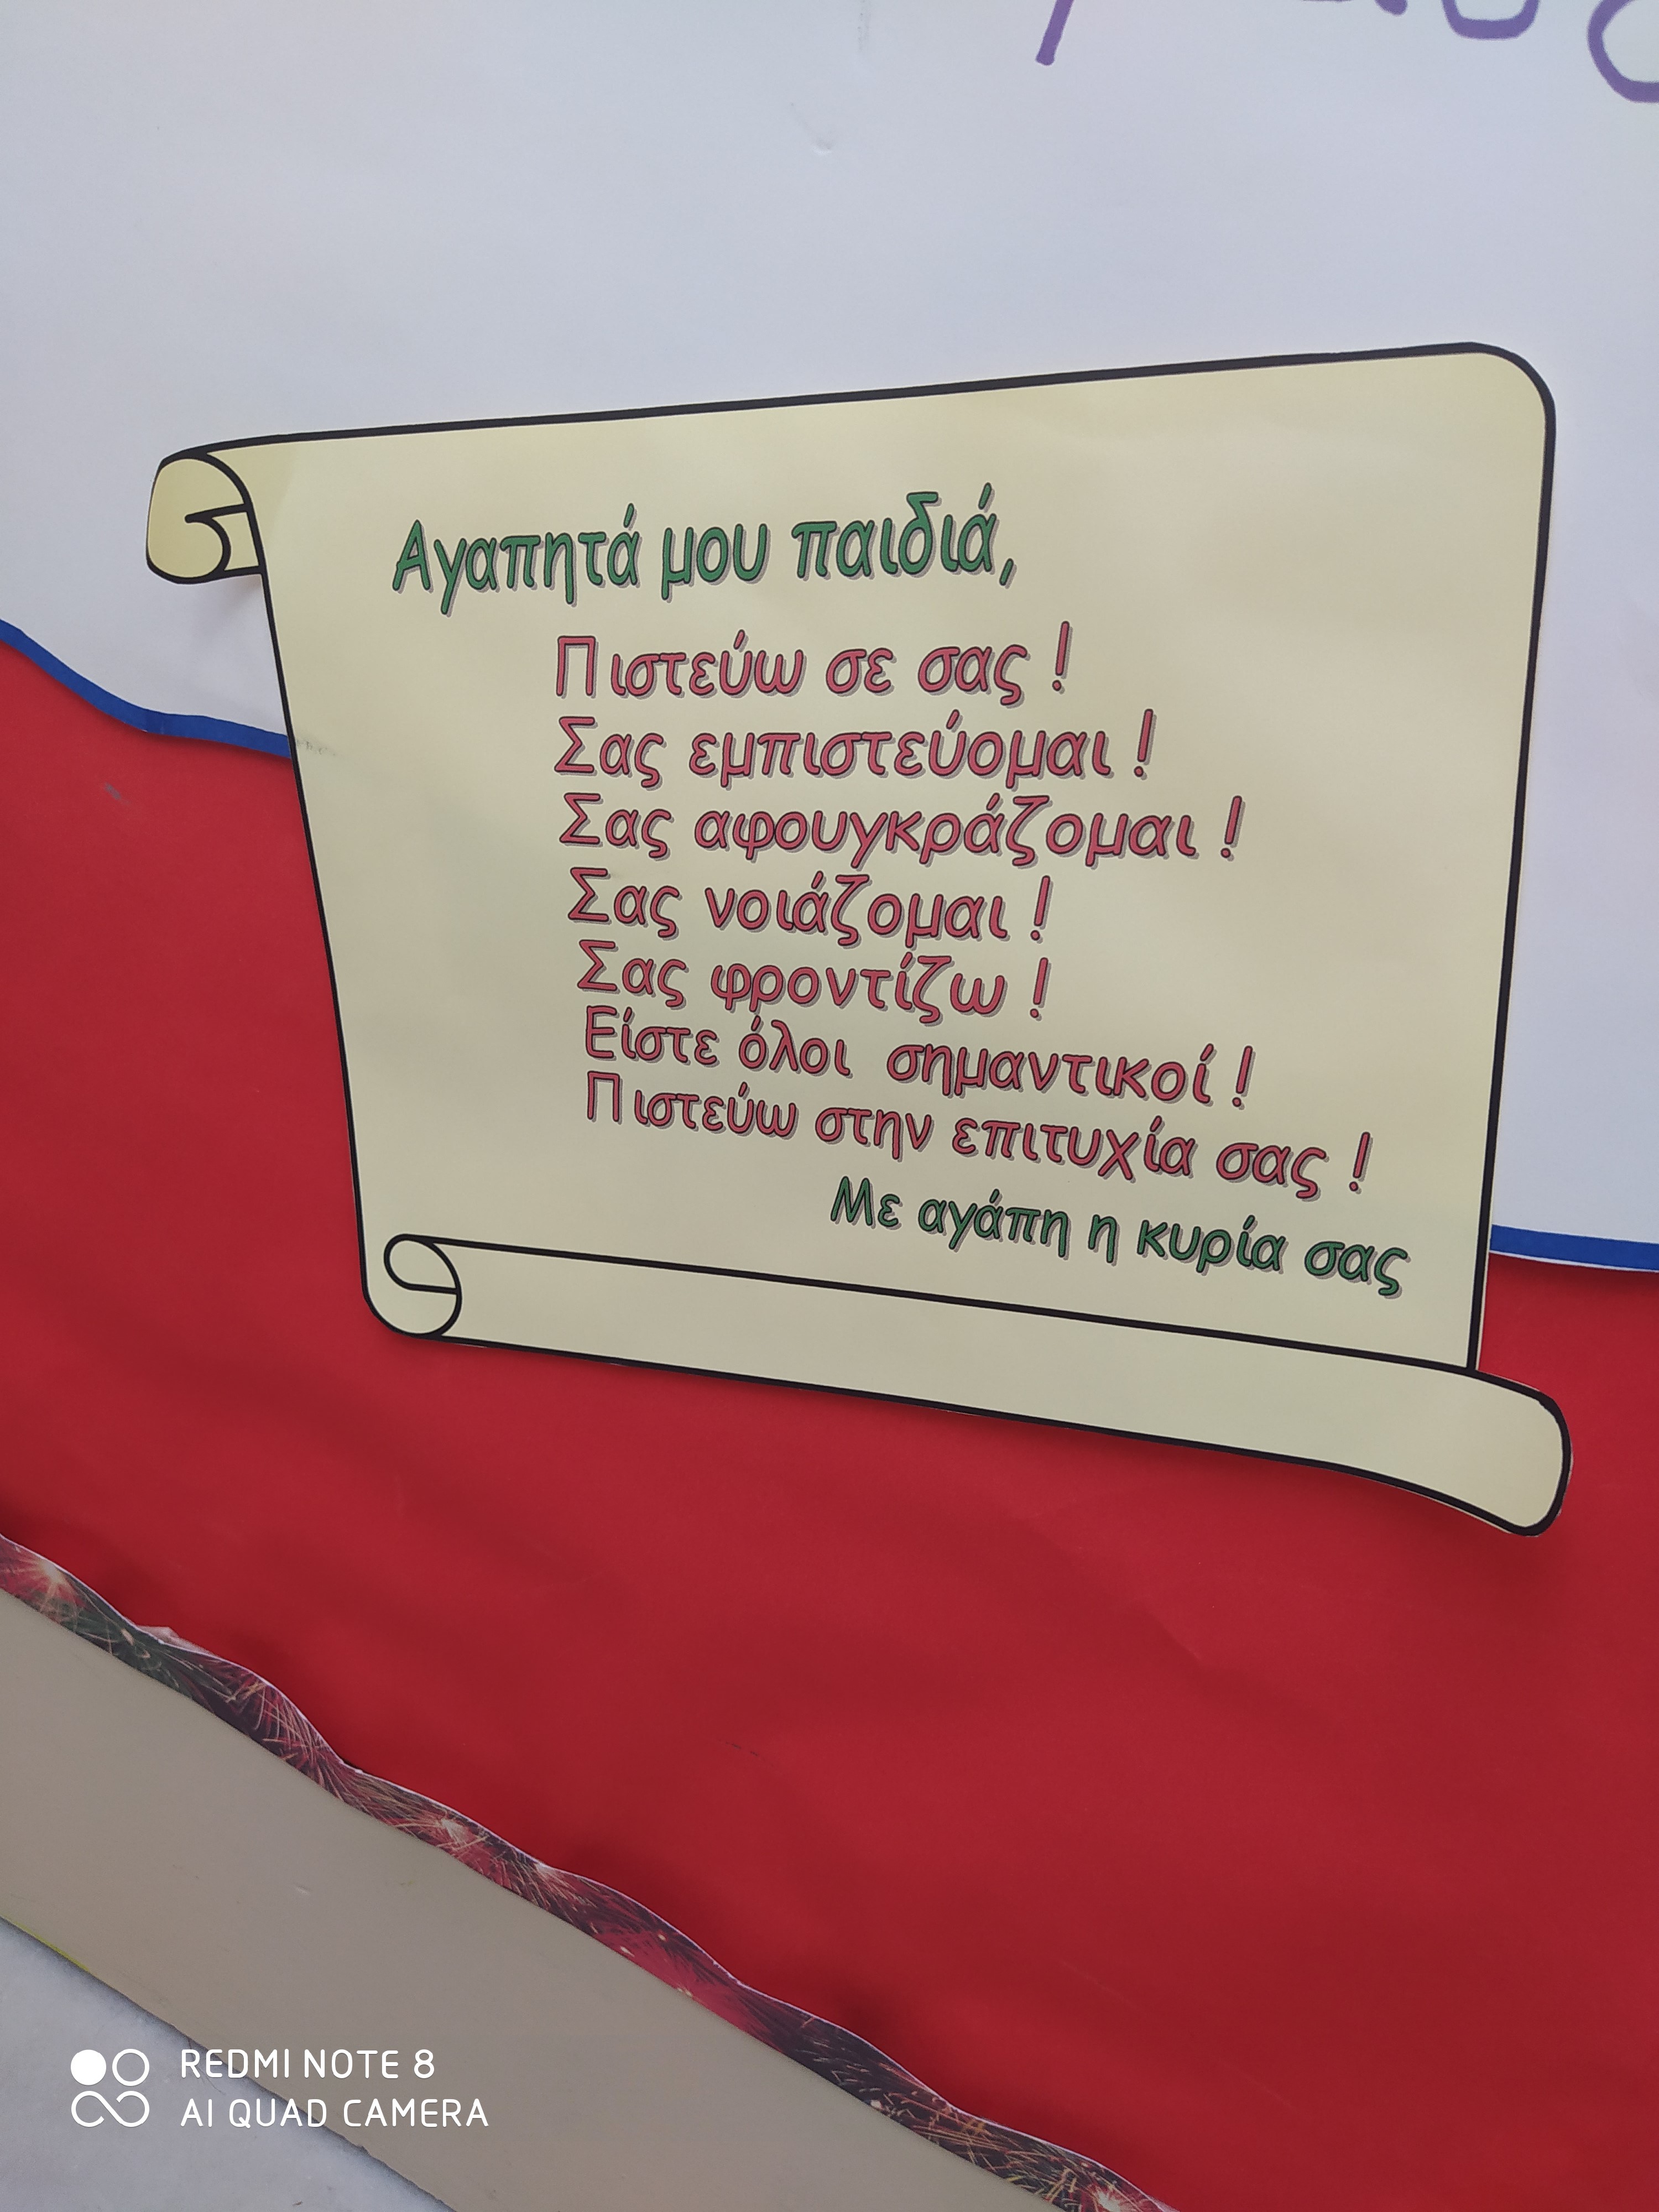 Αγαπητά μου παιδιά,
Πιστεύω σε σας !
Σας εμπιστεύομαι !
Σας αφουγκράζομαι !
Σας νοιάζομαι !
Σας φροντίζω !
Είστε όλοι σημαντικοί !
Πιστεύω στην επιτυχία σας !
Με αγάπη η κυρία σας
REDMI NOTE 8
AI QUAD CAMERA